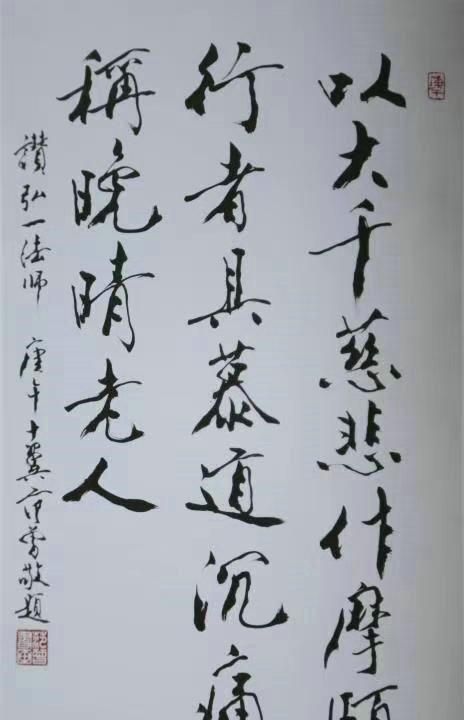 以大千慈悲作摩頂
行者具慕道沉痛
稱晚晴老人
讚弘一法师 庚午十翼范曾敬題